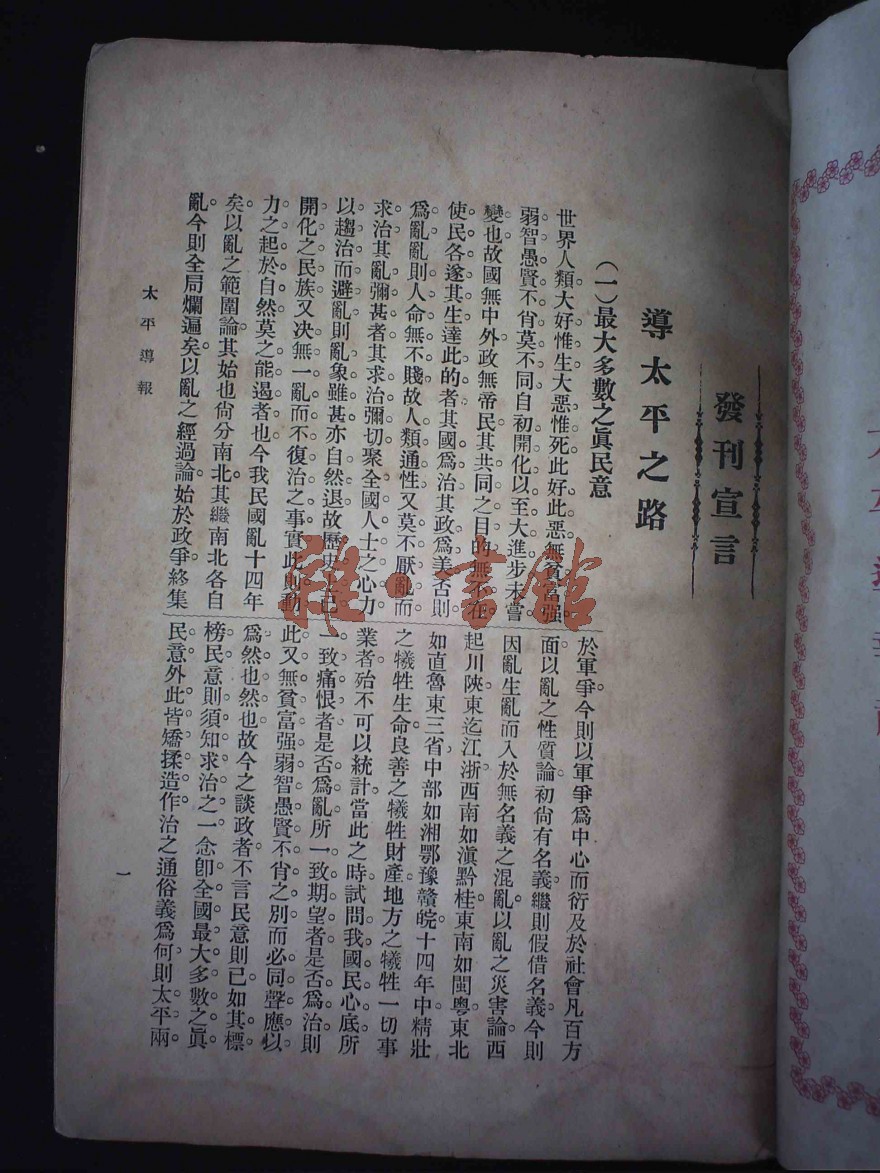 發刊宣言
導太平之路
(一)最大多數之眞民意
世界人類大好惟生大惡惟死此好此惡無貧富强
弱智愚賢不肖莫不同自初開化以至大進步未嘗
變也故國無中外政無帝民其共同之目的無不在
使民各遂其生達此的者其國爲治其政爲美否則
爲亂亂則人命無不賤故人類通性又莫不厭亂而
求治其亂彌甚者其求治彌切聚全國人士之心力
以趨治而避亂則亂象雖甚亦自然退故歷史上已
開化之民族又決無一亂而不復治之事實此則動
力之起於自然莫之能遏者也今我民國亂十四年
矣以亂之範圍論其始也尙分南北其繼南北各自
亂今則全局爛遍矣以亂之經過論始於政爭終集
於軍爭今則以軍爭爲中心而衍及於社會凡百方
面以亂之性質論初尙有名義繼則假借名義今則
因亂生亂而入於無名義之混亂以亂之災害論西
起川陝東迄江浙西南如滇黔桂東南如閩粵東北
如直魯東三省中部如湘鄂豫贛皖十四年中精壯
之犧牲生命良善之犧牲財產地方之犧牲一切事
業者殆不可以統計當此之時試問我國民心底所
一致痛恨者是否爲亂所一致期望者是否爲治則
此又無貧富强弱智愚賢不肖之別而必同聲應以
爲然也然也故今之談政者不言民意則已如其標
榜民意則須知求治之一念卽全國最大多數之眞
民意外此皆矯揉造作治之通俗義爲何則太平兩
太平導報
一
雜·書館